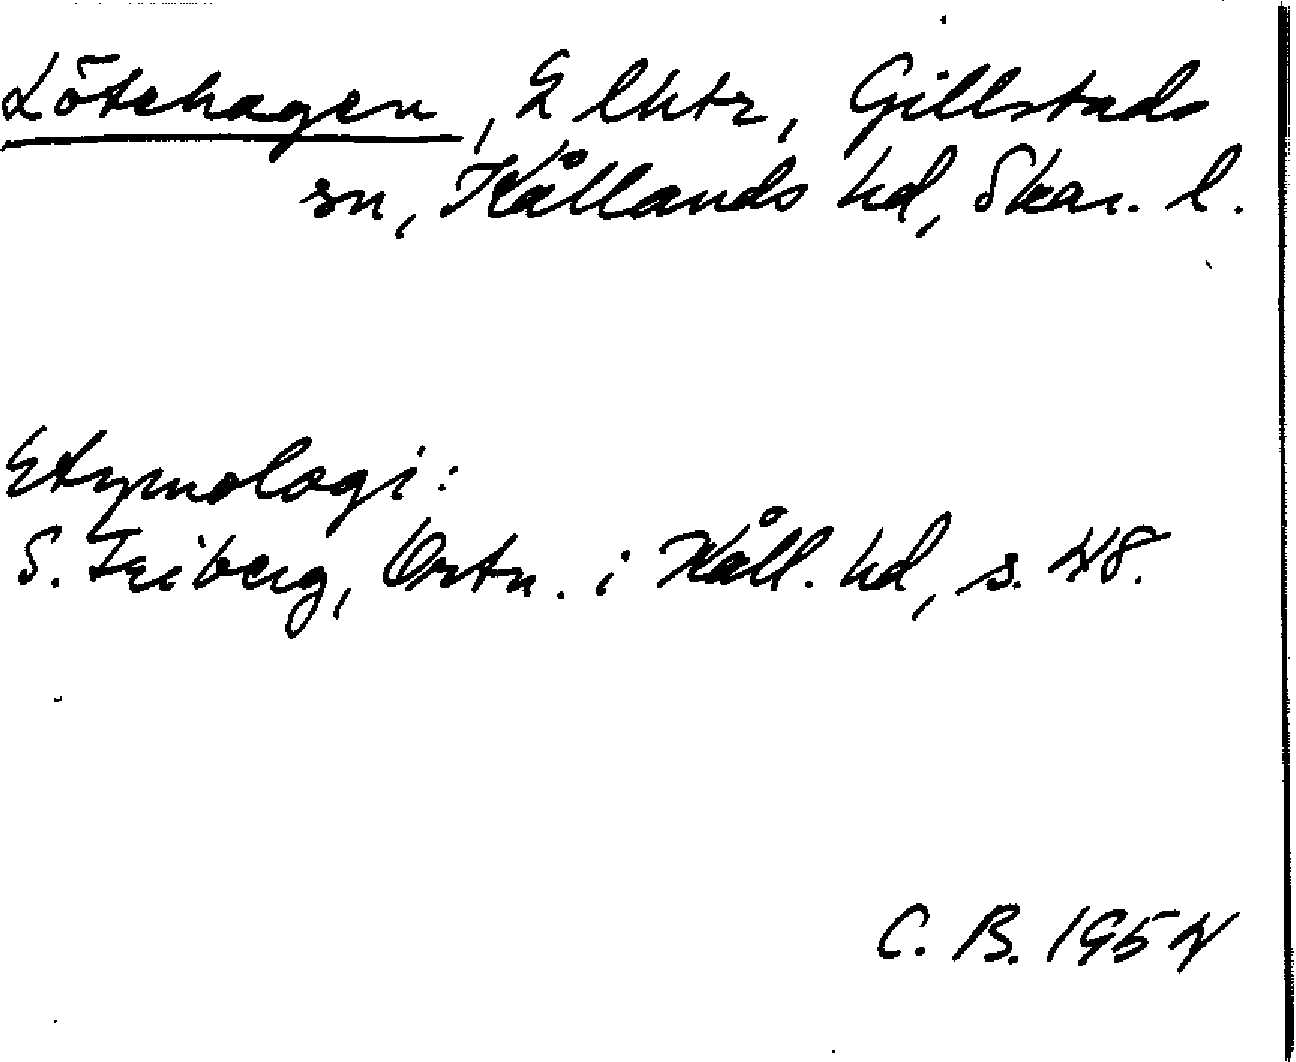 Lötehagen, 2 lhtr, Gillstads
sn, Kållands hd, Skar. l.
Etymologi:
S. Friberg, Ortn. i Kåll. hd, s. 48.
C. B. 1954